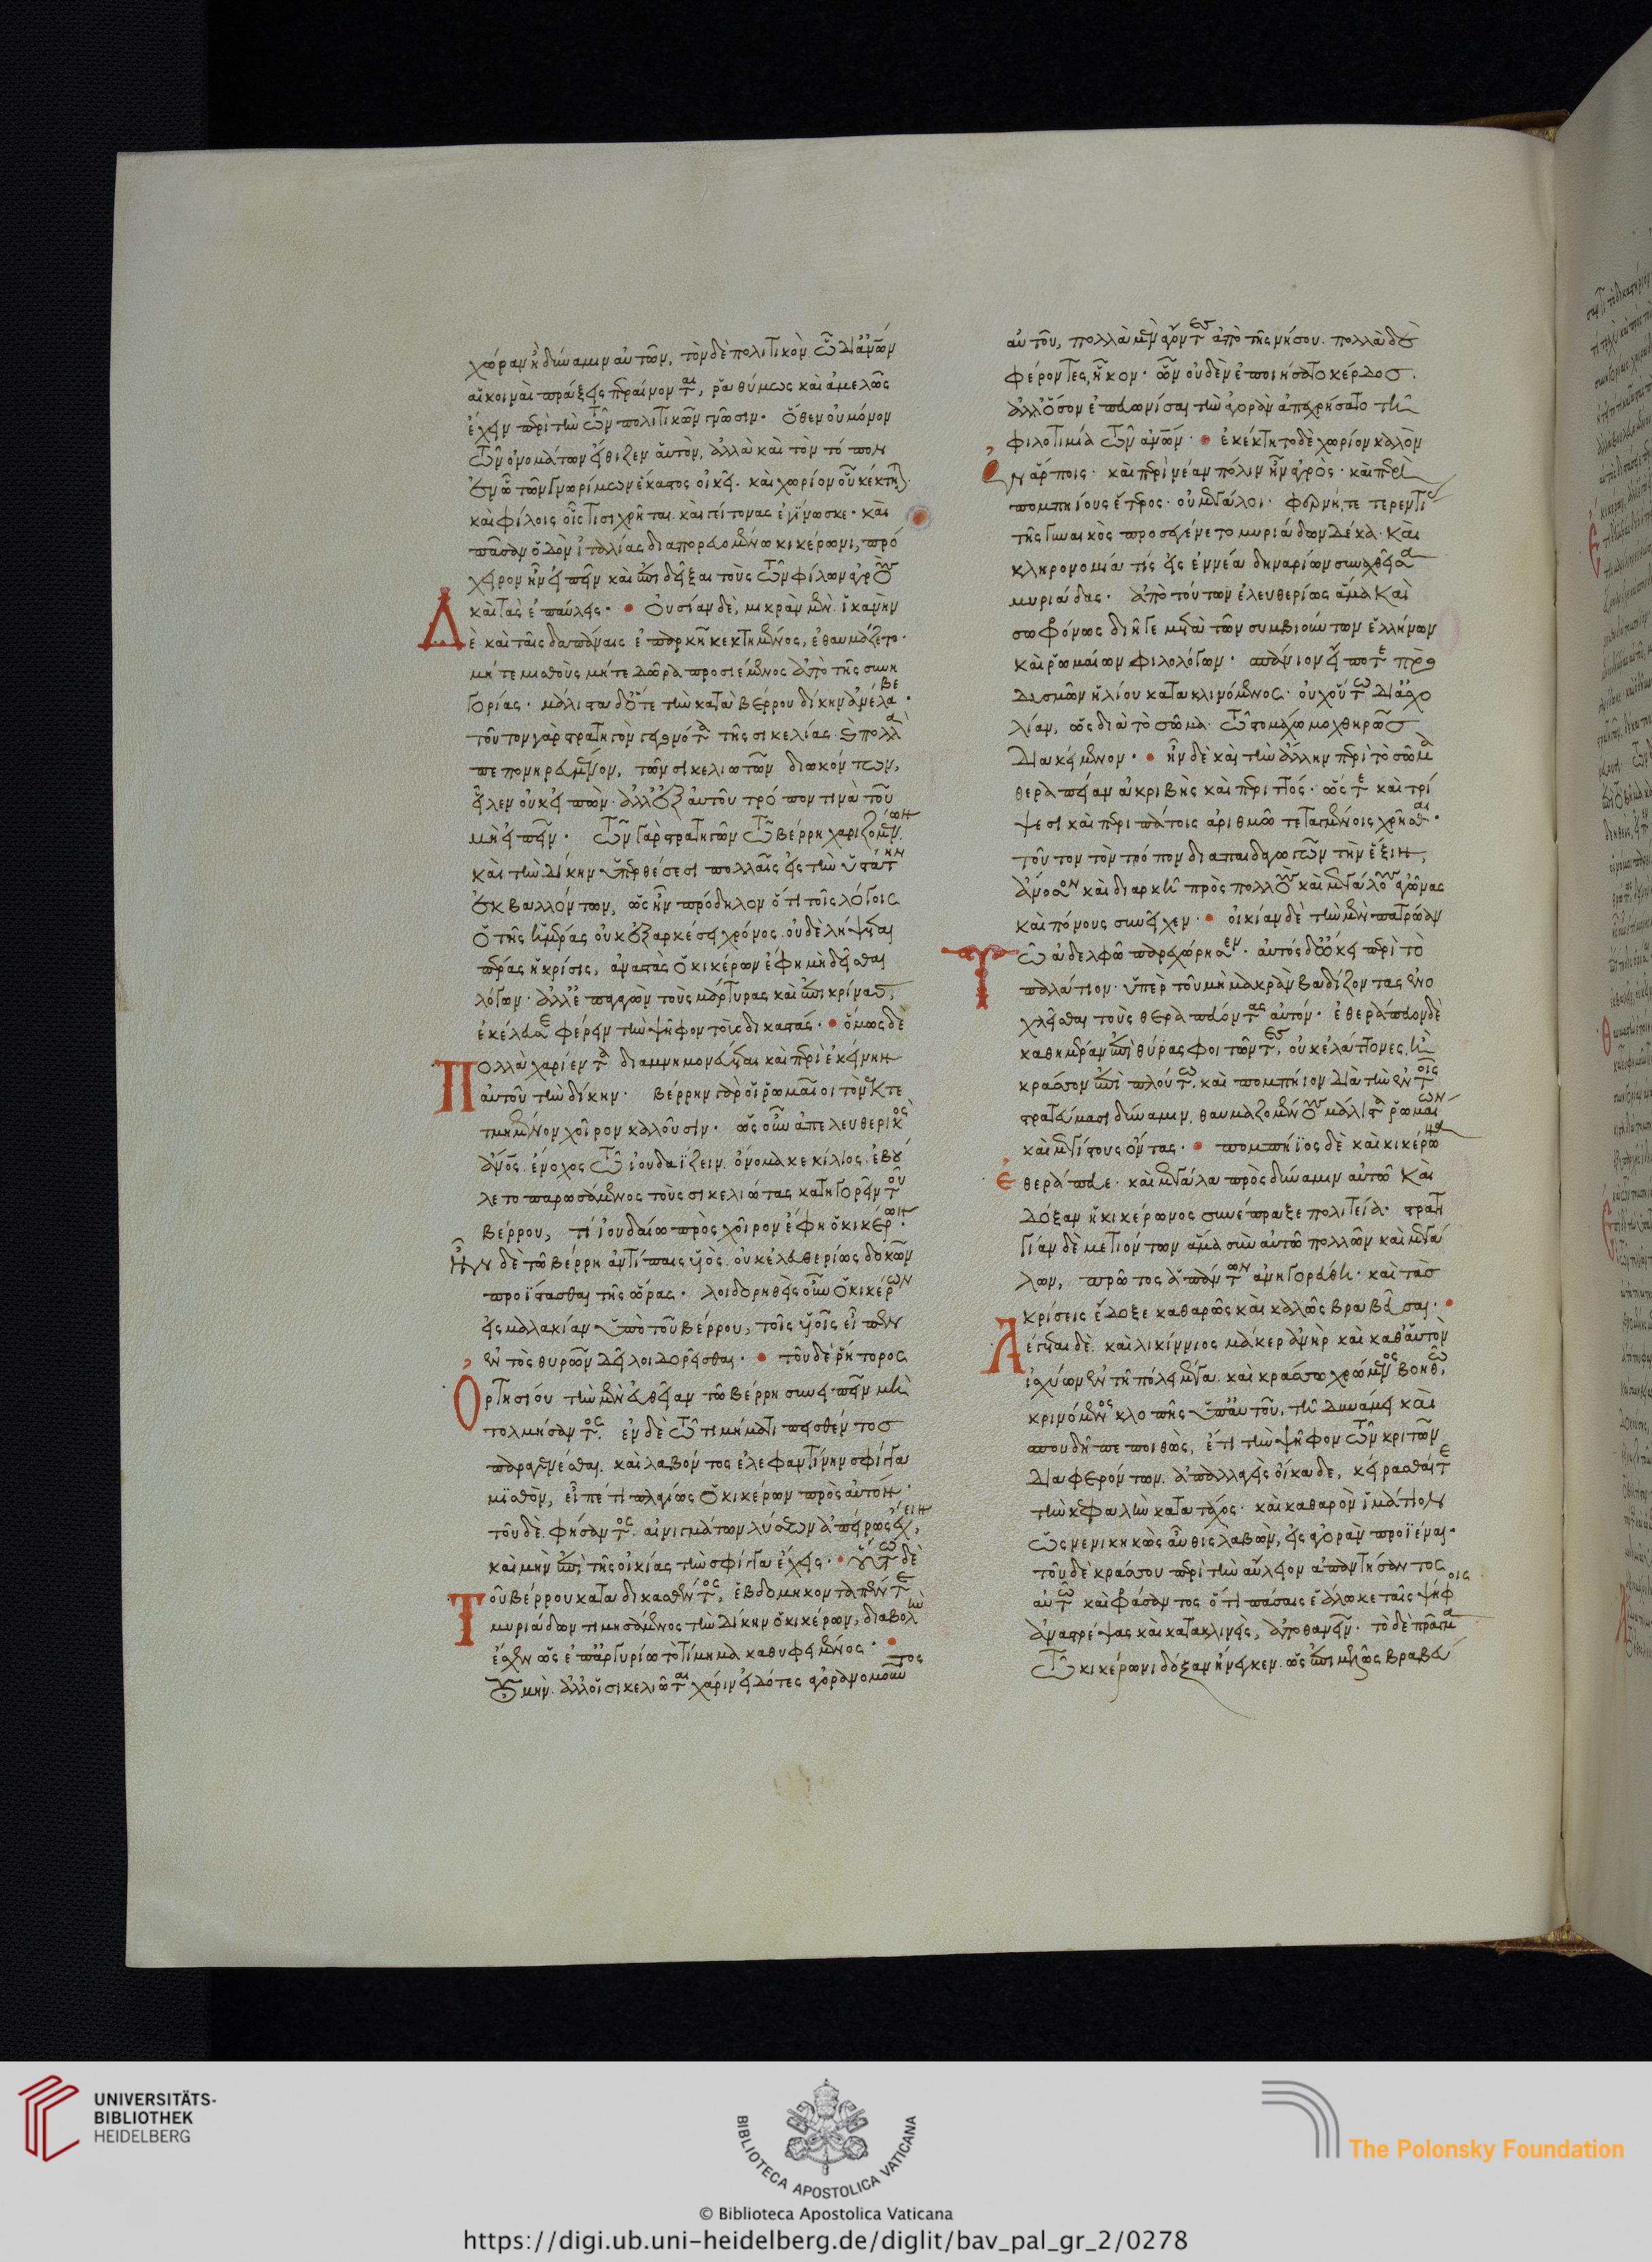 χώραν καὶ δύναμιν αὐτῶν, τὸν δὲ πολιτικὸν. ὧ δι' ἀνῶν
αἱ κοιναὶ πράξεις περαίνονται, ραθύμως καὶ ἀμελῶς
ἔχειν περὶ τὴν τῶν πολιτικῶν γνῶσιν· ὅθεν οὐ μόνον
τῶν ὀνομάτων εἴθιζεν αὑτὸν, ἀλλὰ καὶ τὸν τόπον
ἐν ὧ τῶν γνωρίμων ἕκαστος οἰκεῖ. καὶ χωρίον οὗ κέκτηται
καὶ φίλοις οἷς τισι χρῆται. καὶ γείτονας ἐγίνωσκε· καὶ
πᾶσαν ὁδὸν ἰταλίας διαπορευομένω κικέρωνι, πρό
χειρον ἦν εἰπεῖν καὶ ἐπιδεῖξαι τοὺς τῶν φίλων ἀγροὺς
καὶ τὰς ἐπαύλεις· Οὐσίαν δὲ, μικρὰν μὲν. ἱκανὴν
Δὲ καὶ ταῖς δαπάναις ἐπαρκῆ κεκτημένος, ἐθαυμάζετο·
μήτε μισθοὺς μήτε δῶρα προσιέμενος ἀπὸ τῆς συνη
γορίας· μάλιστα δ' ὅτε τὴν κατὰ βέρρου δίκην ἀνέλαβε·
τοῦτον γὰρ στρατηγὸν γεγονότα τῆς σικελίας· καὶ πολλὰ
πεπονηρευμένον, τῶν σικελιωτῶν διωκόντων,
εἷλεν οὐκ εἰπὼν· ἀλλ' ἐξ αὐτοῦ τρόπον τινὰ τοῦ
μὴ εἰπεῖν· τῶν γὰρ στρατηγῶν τῶ βέρρη χαριζομένων
καὶ τὴν δίκην ὑπερθέσεσι πολλαῖς εἰς τὴν ὑστάτην
ἐκβαλλόντων, ὡς ἦν πρόδηλον ὅτι τοῖς λόγοις
ὁ τῆς ἡμέρας οὐκ ἐξαρκέσει χρόνος. οὐδὲ λήψεται
πέρας ἡ κρίσις, ἀναστὰς ὁ κικέρων ἔφη μὴ δεῖσθαι
λόγων· ἀλλ' ἐπαγαγὼν τοὺς μάρτυρας καὶ ἐπικρίνας,
ἐκέλευσε φέρειν τὴν ψῆφον τοὺς δικαστάς· ὅμως δὲ
Πολλὰ χαρίεντα διαμνημονεύεται καὶ περὶ ἐκείνην
αὐτοῦ τὴν δίκην· βέρρην γὰρ οἱ ῥωμαῖοι τὸν ἐκτε
τμημένον χοῖρον καλοῦσιν· ὡς οὖν ἀπελευθερικὸς
ἄνος. ἔνοχος τῶ ἰουδαΐζειν. ὄνομα κεκίλιος. ἐβού
λετο παρωσάμενος τοὺς σικελιώτας κατηγορεῖν τοῦ
βέρρου, τί ἰουδαίω πρὸς χοῖρον ἔφη ὁ κικέρων·
Ἦν δὲ τῶ βέρρη ἀντίπαις υἱὸς. οὐκ ἐλευθερίως δοκῶν
προΐστασθαι τῆς ὥρας· λοιδορηθεὶς οὖν ὁ κικέρων
εἰς μαλακίαν ὑπὸ τοῦ βέρρου, τοῖς υἱοῖς εἶπεν
ἐντὸς θυρῶν δεῖ λοιδορεῖσθαι· τοῦ δὲ ῥήτορος
Ὁρτησίου τὴν μὲν εὐθεῖαν τῶ βέρρη συνειπεῖν μὴ
τολμήσαντος. ἐν δὲ τῶ τιμήματι πεισθέντος
παραγενέσθαι. καὶ λαβόντος ἐλεφαντίνην σφίγγα
μισθὸν, εἶπέ τι πλαγίως ὁ κικέρων πρὸς αὐτόν·
τοῦ δὲ. φήσαντος. αἰνιγμάτων λύσεων ἀπείρως ἔχειν,
καὶ μὴν ἐπὶ τῆς οἰκίας τὴν σφίγγα ἔχεις· οὕτω δὲ
Τοῦ βέρρου καταδικασθέντος, ἑβδομηκονταπέντε
μυριάδων τιμησάμενος τὴν δίκην ὁ κικέρων, διαβολὴν
ἔσχεν ὡς ἐπ' ἀργυρίω τὸ τίμημα καθυφειμένος·
οὐ μὴν. ἀλλ' οἱ σικελιῶται χάριν εἰδότες ἀγορανομοῦντος
αὐτοῦ, πολλὰ μὲν ἄγοντες ἀπὸ τῆς νήσου. πολλὰ δὲ
φέροντες, ἧκον· ὧν οὐδὲν ἐποιήσατο κέρδος.
ἀλλ' ὅσον ἐπευωνίσαι τὴν ἀγορὰν ἀπεχρήσατο τῆ
φιλοτιμία τῶν ἀνῶν· ἐκέκτητο δὲ χωρίον καλὸν
ἐν ἄρποις· καὶ περὶ νέαν πόλιν ἦν ἀγρὸς· καὶ περὶ
πομπηίους ἕτερος· οὐ μεγάλοι· φερνή, τε τερεντίας
τῆς γυναικὸς προσεγένετο μυριάδων δέκα. καὶ
κληρονομία τίς εἰς ἐννέα δηναρίων συναχθεῖσα
μυριάδας· ἀπὸ τούτων ἐλευθερίως ἅμα καὶ
σωφρόνως διῆγε μετὰ τῶν συμβιούντων ἑλλήνων
καὶ ῥωμαίων φιλολόγων· σπάνιον εἴ ποτε πρὸ
δυσμῶν ἡλίου κατακλινόμενος· οὐχ οὕτω δι' ἀσχο
λίαν, ὡς διὰ τὸ σῶμα. τῶ στομάχω μοχθηρῶς
διακείμενον· ἦν δὲ καὶ τὴν ἄλλην περὶ τὸ σῶμα
θεραπείαν ἀκριβὴς καὶ περιττός· ὥστε καὶ τρί
ψεσι καὶ περιπάτοις ἀριθμῶ τεταγμένοις χρῆσθαι·
τοῦτον τὸν τρόπον διαπαιδαγωγῶν τὴν ἕξιν,
ἄνοσον καὶ διαρκῆ πρὸς πολλοὺς καὶ μεγάλους ἀγῶνας
καὶ πόνους συνεῖχεν· οἰκίαν δὲ τὴν μὲν πατρώαν
Τῶ ἀδελφῶ παρεχώρησεν· αὐτὸς δ' ὤκει περὶ τὸ
παλάτιον· ὑπὲρ τοῦ μὴ μακρὰν βαδίζοντας ἐνο
χλεῖσθαι τοὺς θεραπεύοντας αὐτόν· ἐθεράπευον δὲ
καθημέραν ἐπὶ θύρας φοιτῶντες, οὐκ ἐλάττονες. ἢ
κράσσον ἐπὶ πλούτω· καὶ πομπήιον διὰ τὴν ἐν τοῖς
στρατεύμασι δύναμιν, θαυμαζομένους μάλιστα ῥωμαίων
καὶ μεγίστους ὄντας· πομπήϊος δὲ καὶ κικέρωνα
ἐθεράπευε· καὶ μεγάλα πρὸς δύναμιν αὐτῶ καὶ
δόξαν ἡ κικέρωνος συνέπραξε πολιτεία· στρατη
γίαν δὲ μετιόντων ἅμα σὺν αὐτῶ πολλῶν καὶ μεγά
λων, πρῶτος ἁπάντων ἀνηγορεύθη· καὶ τὰς
κρίσεις ἔδοξε καθαρῶς καὶ καλῶς βραβεῦσαι·
Λέγεται δὲ. καὶ λικίννιος μάκερ ἀνὴρ καὶ καθ' αὑτὸν
ἰσχύων ἐν τῆ πόλει μέγα. καὶ κράσσω χρώμενος βοηθῶ,
κρινόμενος κλοπῆς ὑπ' αὐτοῦ, τῆ δυνάμει καὶ
σπουδῆ πεποιθὼς, ἔτι τὴν ψῆφον τῶν κριτῶν
διαφερόντων. ἀπαλλαγεὶς οἴκαδε, κείρασθαί τε
τὴν κεφαλὴν κατὰ τάχος· καὶ καθαρὸν ἱμάτιον
ὡς νενικηκὼς αὖθις λαβὼν, εἰς ἀγορὰν προϊέναι·
τοῦ δὲ κράσσου περὶ τὴν αὔλειον ἀπαντήσαντος
αὐτῶ καὶ φράσαντος ὅτι πάσαις ἑάλωκε ταῖς ψήφοις
ἀναστρέψας καὶ κατακλινεὶς, ἀποθανεῖν· τὸ δὲ πρᾶγμα
τῶ κικέρωνι δόξαν ἤνεγκεν. ὡς ἐπιμελῶς βραβεύ
UNIVERSITÄTS-
BIBLIOTHEK
HEIDELBERG
BIBLIOTECA APOSTOLICA VATICANA
The Polonsky Foundation
© Biblioteca Apostolica Vaticana
https://digi.ub.uni-heidelberg.de/diglit/bav_pal_gr_2/0278